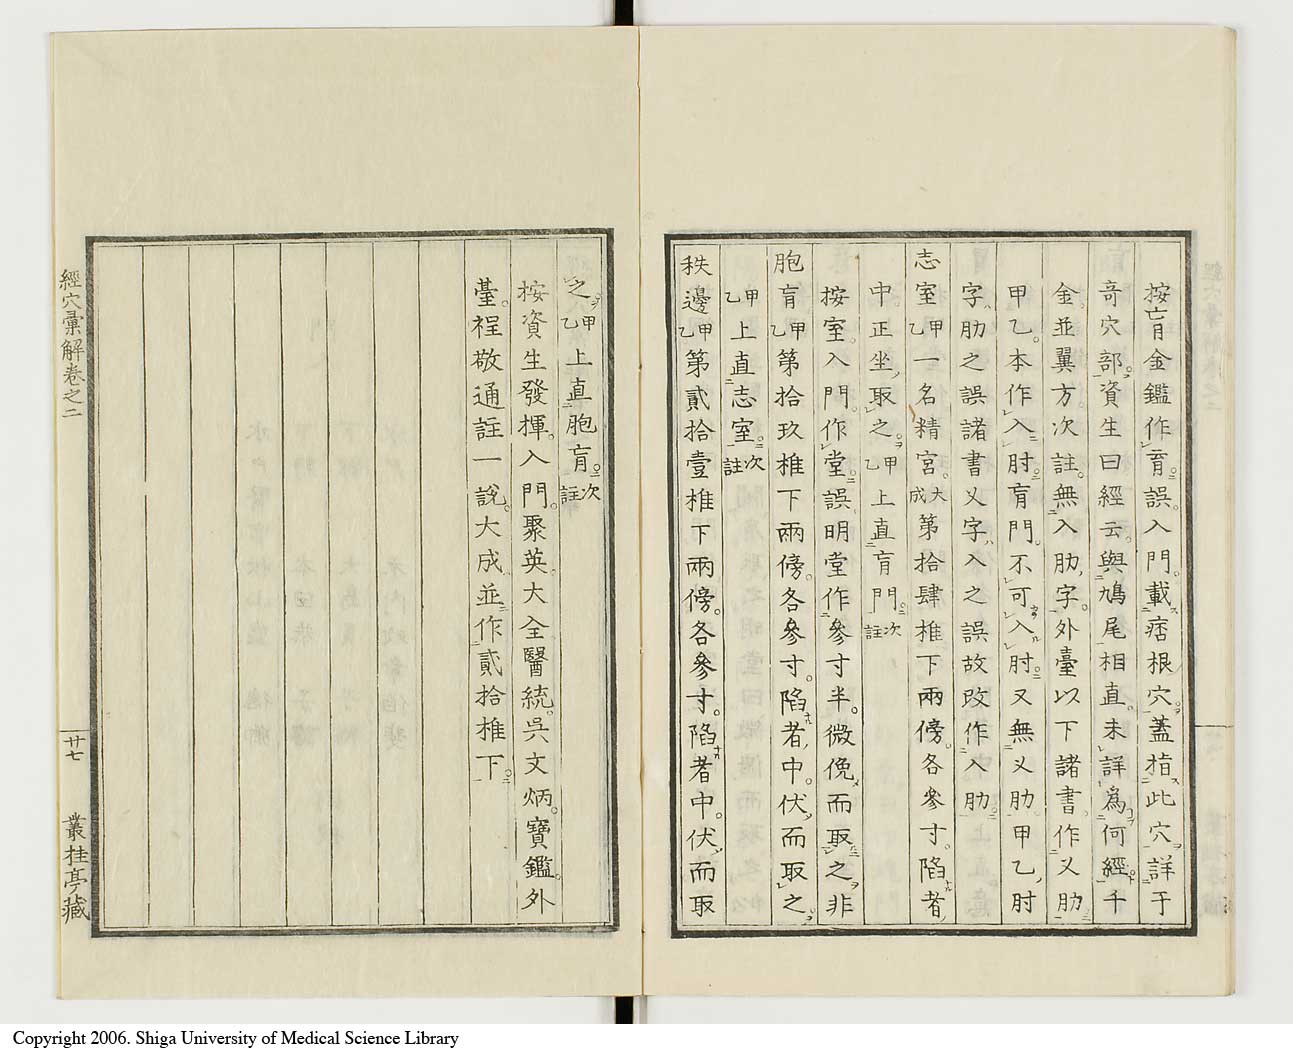 按肓金鑑作育誤入門載痞根穴蓋指此穴詳于
竒穴部資生曰經云與鳩尾相直未詳爲何經千
金並翼方次註無入肋字外臺以下諸書作又肋
甲乙本作入肘肓門不可入肘又無乂肋甲乙肘
字肋之誤諸書乂字入之誤故改作入肋
志室甲乙一名精宮大成第拾肆椎下兩傍各參寸陷者
中正坐取之甲乙上直肓門次註
按室入門作堂誤明堂作參寸半微俛而取之非
胞肓甲乙第拾玖椎下兩傍各參寸陷者中伏而取之
甲乙上直志室次註
秩邊甲乙第貳拾壹椎下兩傍各參寸陷者中伏而取
之甲乙上直胞肓次註
按資生發揮入門聚英大全醫統吳文炳寶鑑外
臺裎敬通註一說大成並作貳拾椎下
經穴彙解卷之二
廿七
叢桂亭藏
Copyright 2006. Shiga University of Medical Science Library